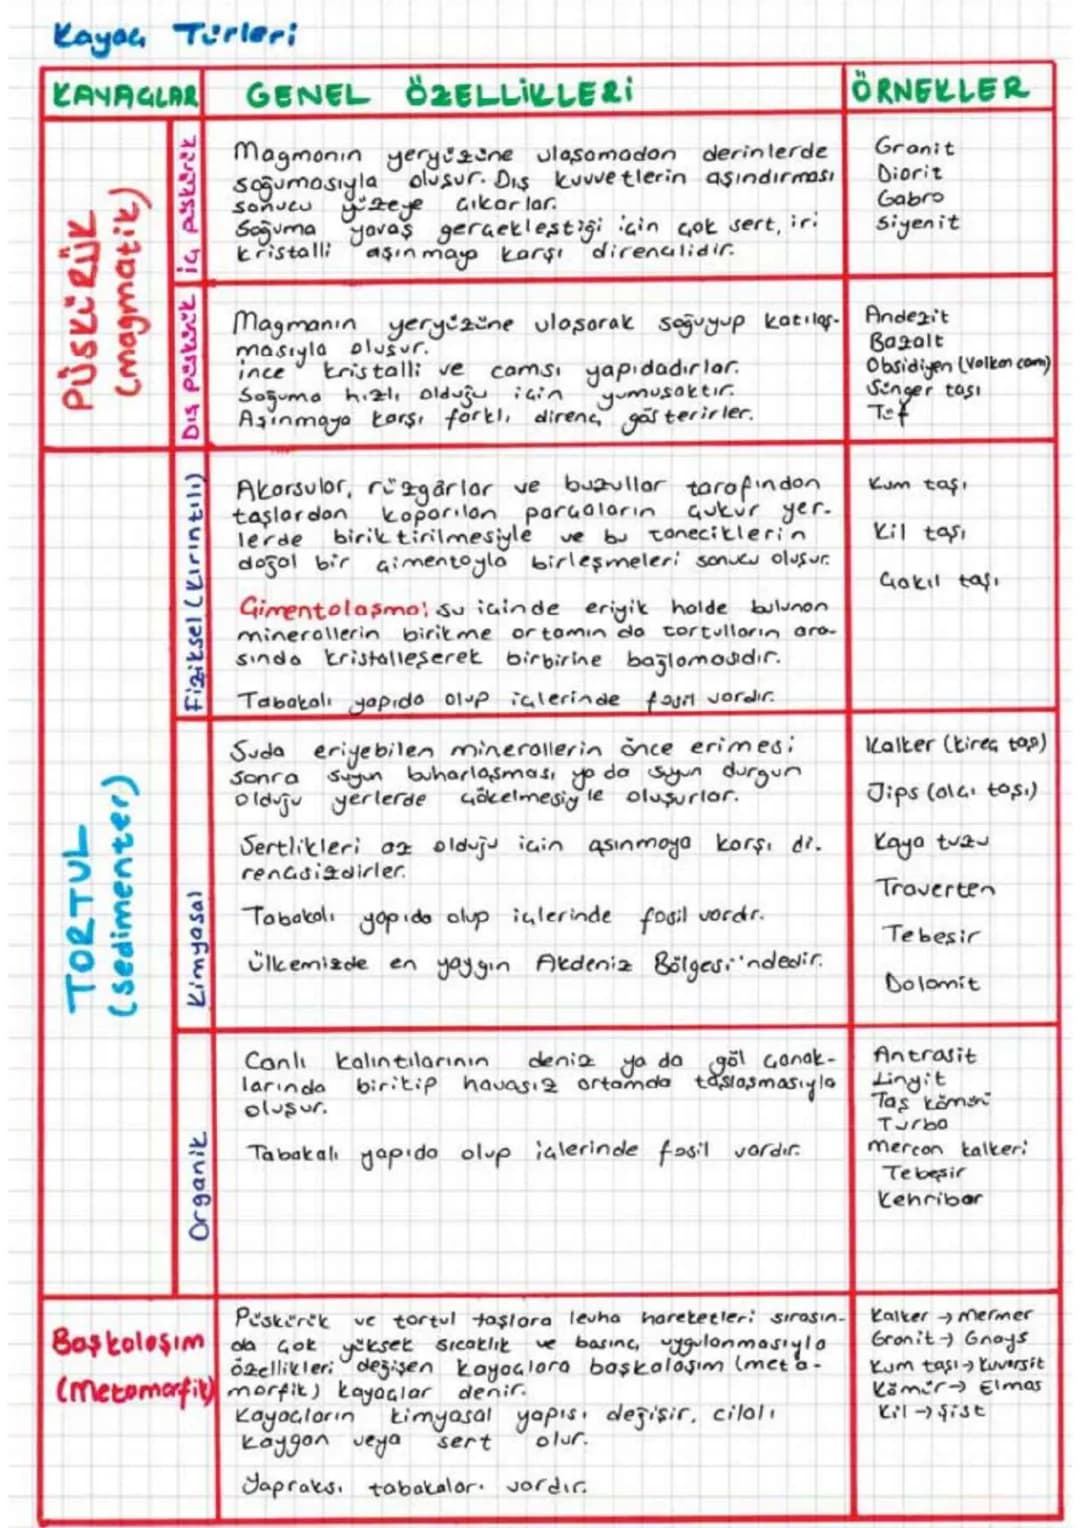 Kayaç Türleri
KAYAÇLAR
GENEL ÖZELLİKLERİ
ÖRNEKLER
PÜSKÜRÜK
(magmatik)
iç püskürük
Magmanın yeryüzüne ulaşamadan derinlerde
soğumasıyla oluşur. Dış kuvvetlerin aşındırması
sonucu yüzeye çıkarlar.
Soğuma yavaş gerçekleştiği için çok sert, iri
kristalli aşınmaya karşı dirençlidir.
Granit
Diorit
Gabro
Siyenit
Dış püskürük
Magmanın yeryüzüne ulaşarak soğuyup katılaş-
masıyla oluşur.
ince kristalli ve camsı yapıdadırlar.
Soğuma hızlı olduğu için yumuşaktır.
Aşınmaya karşı farklı direnç gösterirler.
Andezit
Bazalt
Obsidiyen (Volkan camı)
Sünger taşı
Tüf
TORTUL
(sedimenter)
Fiziksel (Kırıntılı)
Akarsular, rüzgârlar ve buzullar tarafından
taşlardan koparılan parçaların çukur yer-
lerde biriktirilmesiyle ve bu taneciklerin
doğal bir çimentoyla birleşmeleri sonucu oluşur.
Çimentolaşma: su içinde eriyik halde bulunan
minerallerin birikme ortamında tortulların ara-
sında kristalleşerek birbirine bağlamasıdır.
Tabakalı yapıda olup içlerinde fosil vardır.
Kum taşı
Kil taşı
Çakıl taşı
Kimyasal
Suda eriyebilen minerallerin önce erimesi
sonra suyun buharlaşması ya da suyun durgun
olduğu yerlerde çökelmesiyle oluşurlar.
Sertlikleri az olduğu için aşınmaya karşı di-
rençsizdirler.
Tabakalı yapıda olup içlerinde fosil vardır.
Ülkemizde en yaygın Akdeniz Bölgesi'ndedir.
Kalker (kireç taşı)
Jips (alçı taşı)
Kaya tuzu
Traverten
Tebeşir
Dolomit
Organik
Canlı kalıntılarının deniz ya da göl çanak-
larında birikip havasız ortamda taşlaşmasıyla
oluşur.
Tabakalı yapıda olup içlerinde fosil vardır.
Antrasit
Linyit
Taş kömürü
Turba
mercan kalkeri
Tebeşir
Kehribar
Başkalaşım
(Metamorfik)
Püskürük ve tortul taşlara levha hareketleri sırasın-
da çok yüksek sıcaklık ve basınç uygulanmasıyla
özellikleri değişen kayaçlara başkalaşım (meta-
morfik) kayaçlar denir.
Kayaçların kimyasal yapısı değişir, cilalı
kaygan veya sert olur.
Yapraksı tabakaları vardır.
Kalker → Mermer
Granit → Gnays
Kum taşı → Kuvarsit
Kömür → Elmas
Kil → Şist